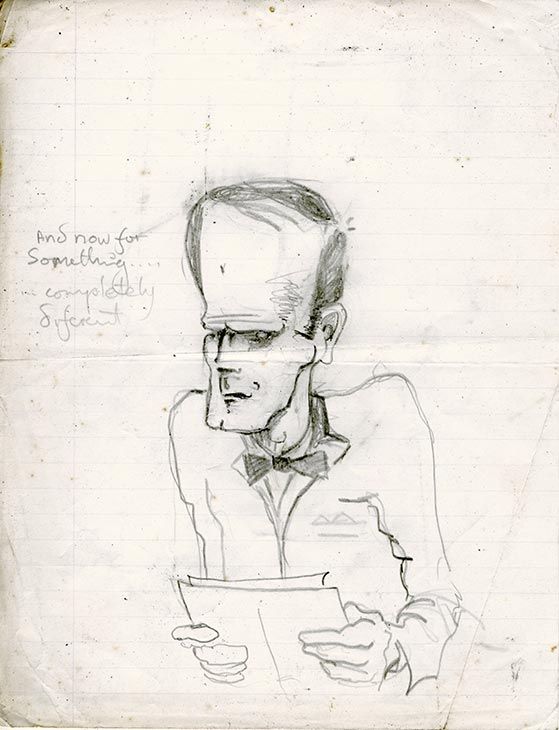 And now for
Something....
... completely
diferent